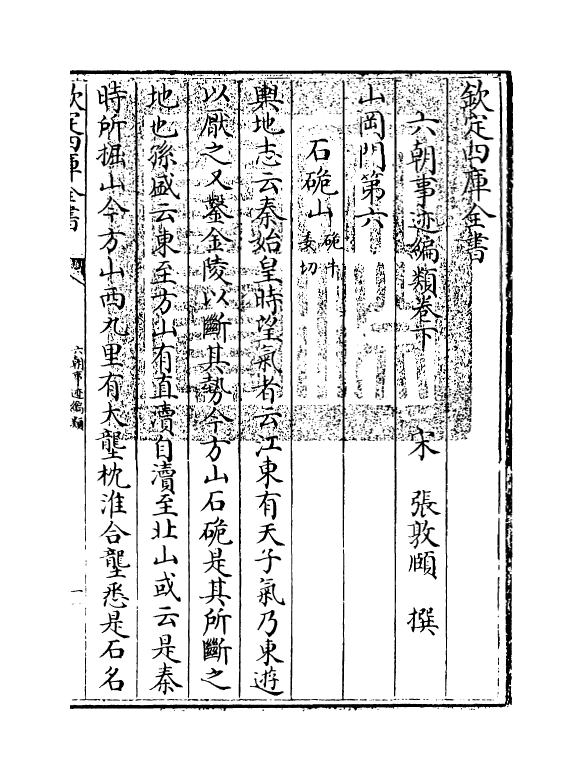 欽定四庫全書
六朝事迹編類卷下
宋 張敦頤 撰
山岡門第六
石硊山 硊牛委切
輿地志云秦始皇時望氣者云江東有天子氣乃東遊
以厭之又鑿金陵以斷其勢今方山石硊是其所斷之
地也孫盛云東至方山有直瀆自瀆至北山或云是秦
時所掘山今方山西九里有大壟枕淮合壟悉是石名
欽定四庫全書
六朝事迹編類
一